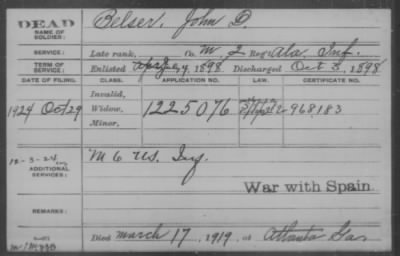 DEAD
NAME OF SOLDIER: Belser, John D.
SERVICE: Late rank, Co. M 2 Reg't Ala Inf.
TERM OF SERVICE: Enlisted 1898 Discharged Oct 3, 1898
DATE OF FILING. CLASS. APPLICATION NO. LAW. CERTIFICATE NO.
Invalid,
1924 Oct 29 Widow, 1225076 968183
Minor,
12-3-24 M 6 U.S. Inf.
ADDITIONAL SERVICES:
War with Spain
REMARKS:
Died March 17, 1919, at Atlanta Ga